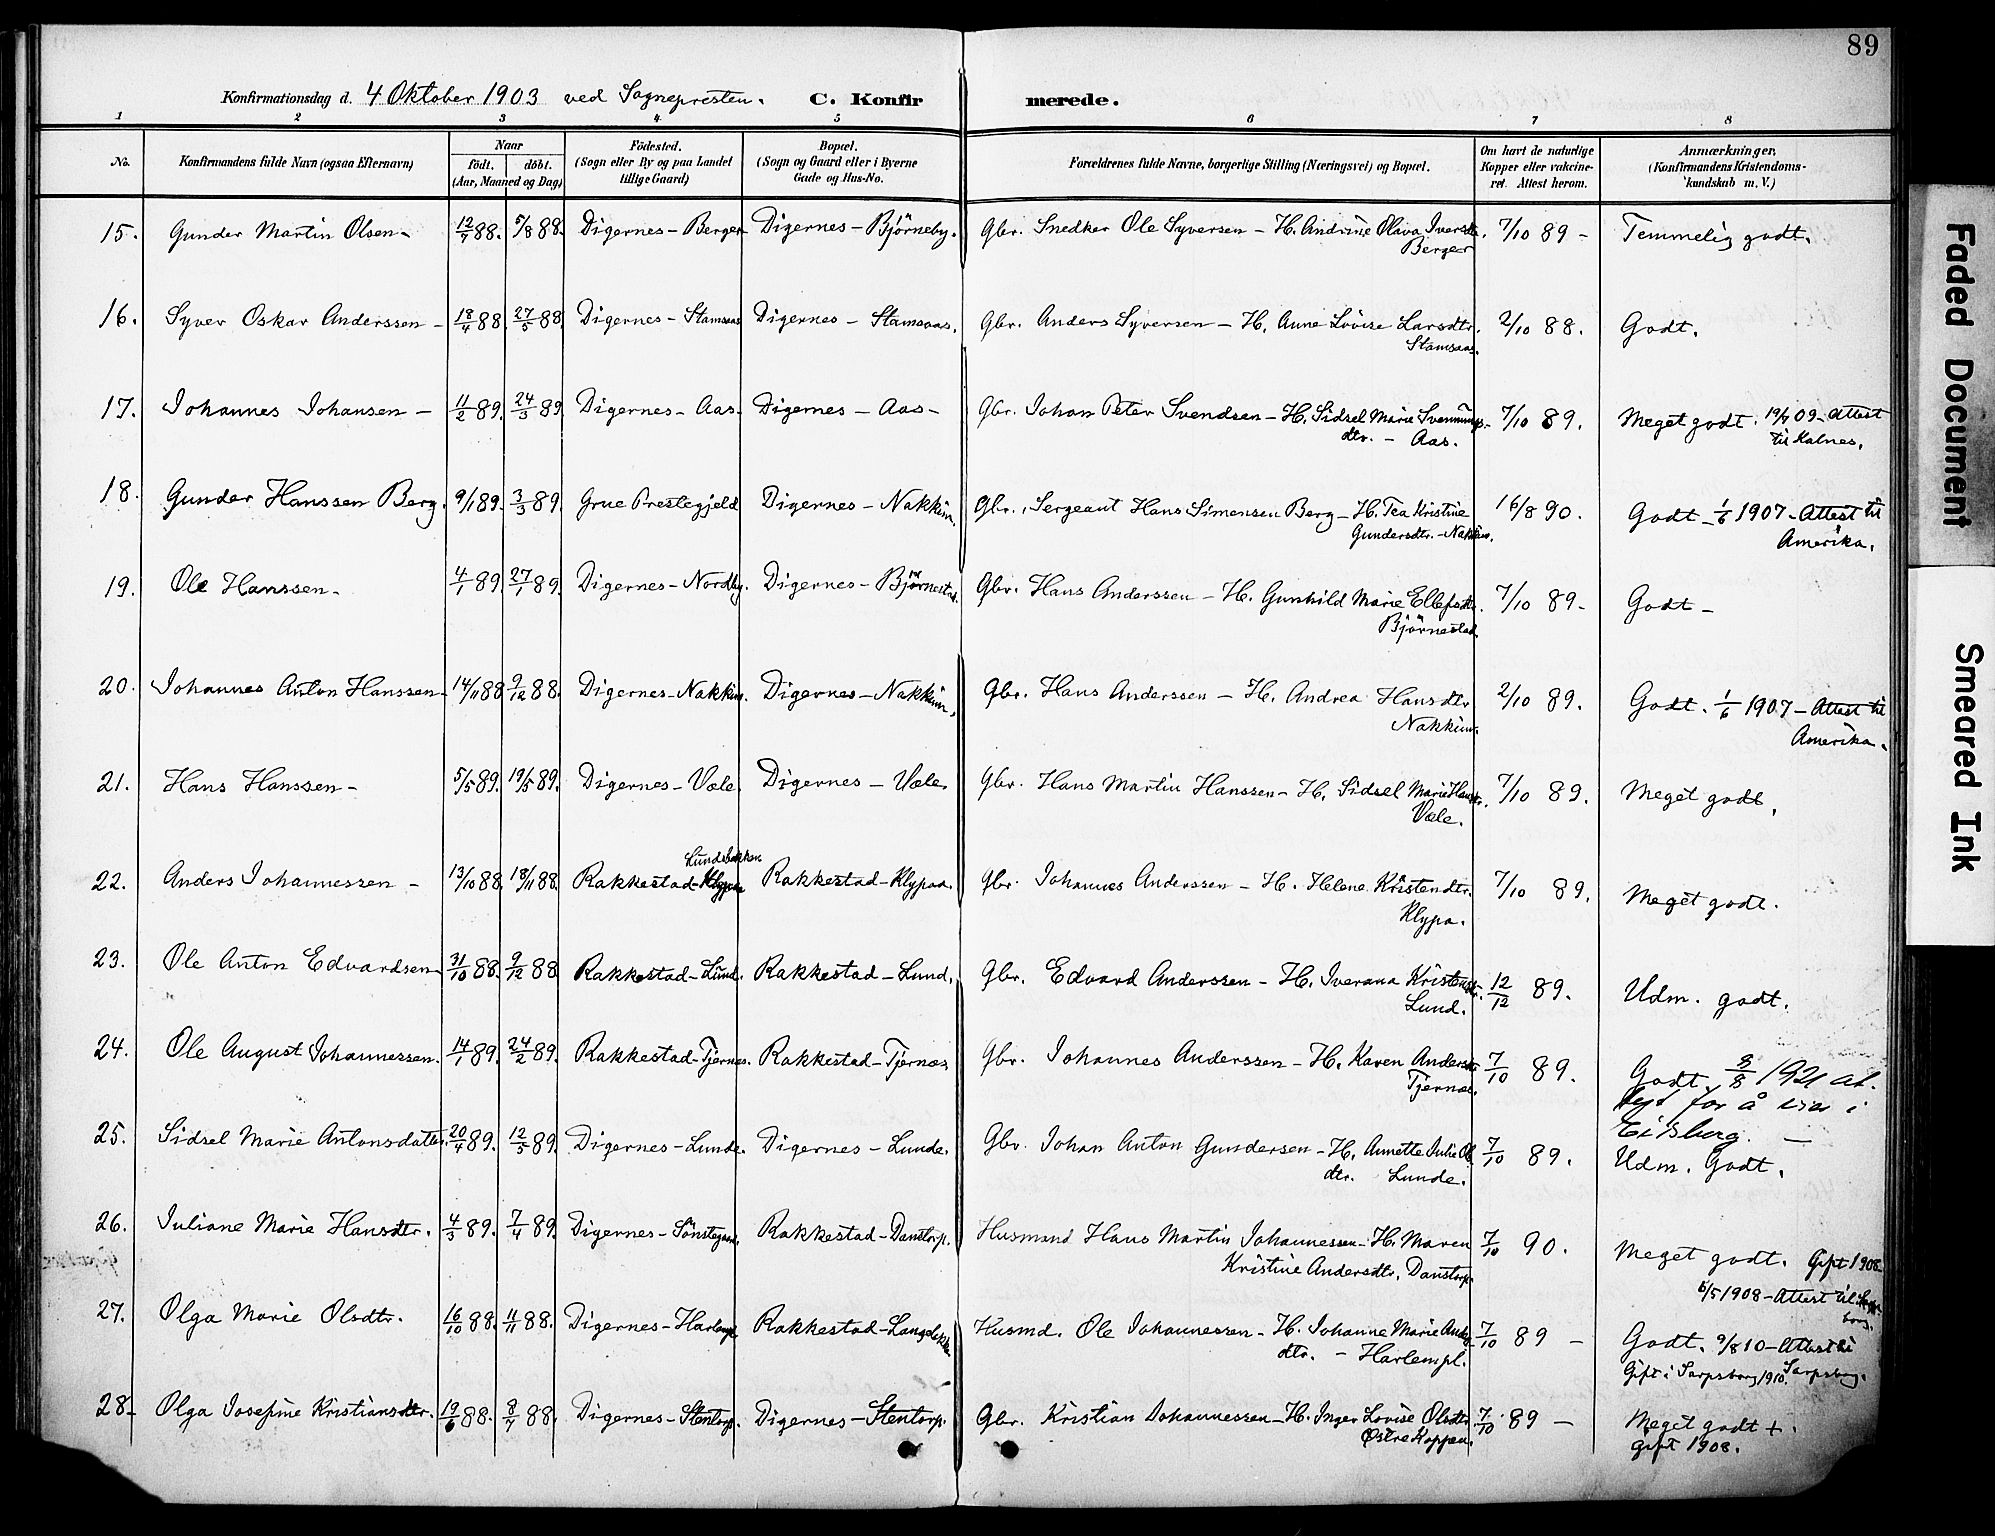 89
Konfirmationsdag d. 4 Oktober 1903 ved Sognepresten. C. Konfir merede.
1 2 3 4 5 6 7 8
No. Konfirmandens fulde Navn (ogsaa Efternavn) Naar födt. döbt. (Aar, Maaned og Dag) Födested. (Sogn eller By og paa Landet tillige Gaard) Bopæl. (Sogn og Gaard eller i Byerne Gade og Hus-No. Forældrenes fulde Navne, borgerlige Stilling (Næringsvei) og Bopæl. Om havt de naturlige Kopper eller vakcineret. Attest herom. Anmærkninger, (Konfirmandens Kristendomskundskab m. V.)
15. Gunder Martin Olsen - 12/7 88. 5/8 88. Digernes - Berger Digernes - Björneby. Gbr. Snedker Ole Syversen - H. Andrine Oliva Iversdtr. 7/10 89 - Temmelig godt.
Berger
16. Syver Oskar Anderssen - 18/4 88 27/5 88. Digernes - Stamsaas Digernes - Stamsaas. Gbr. Anders Syversen - H. Anne Lovise Larsdtr. 2/10 88. Godt.
Stamsaas.
17. Johannes Johansen - 11/2 89. 24/3 89. Digernes - Aas. Digernes - Aas - Gbr. Johan Peter Svendsen - H. Sidsel Marie Svennungs- 7/10 89. Meget godt. 19/4 09 - Attest
dtr. - Aas. til Kalnes.
18. Gunder Hanssen Berg. 9/1 89. 3/3 89. Grue Prestegjeld Digernes - Nakkim. Gbr., Sergeant Hans Simensen Berg - H. Tea Kristine 16/8 90. Godt - 1/6 1907 - Attest til
Gundersdtr. - Nakkim. Amerika.
19. Ole Hanssen - 4/1 89. 27/1 89. Digernes - Nordby. Digernes - Björnestad. Gbr. Hans Anderssen - H. Gunhild Marie Ellefsdtr. 7/10 89 - Godt -
Björnestad.
20. Johannes Anton Hanssen - 14/11 88 9/12 88. Digernes - Nakkim. Digernes - Nakkim. Gbr. Hans Anderssen - H. Andrea Hansdtr 2/10 89. Godt. 1/6 1907 - Attest til
Nakkim. Amerika.
21. Hans Hanssen - 5/5 89. 19/5 89. Digernes - Væle Digernes - Væle. Gbr. Hans Martin Hanssen - H. Sidsel Marie Hansdtr. 7/10 89. Meget godt.
Væle.
Lundebakken
22. Anders Johannessen - 13/10 88. 18/11 88. Rakkestad - Klypa Rakkestad - Klypaa. Gbr. Johannes Anderssen - H. Helene Kristendtr. 7/10 89. Meget godt.
Klypa.
23. Ole Anton Edvardsen - 31/10 88. 9/12 88 Rakkestad - Lund. Rakkestad - Lund. Gbr. Edvard Anderssen - H. Iverana Kristensdtr. 12/12 89. Udm. godt.
Lund.
24. Ole August Johannessen. 14/1 89. 24/2 89. Rakkestad - Tjernes. Rakkestad - Tjernæs. Gbr. Johannes Anderssen - H. Karen Andersdtr 7/10 89. Godt. 8/8 1921 at-
Tjernæs. test for å bo i
Eidsberg. -
25. Sidsel Marie Antonsdatter. 20/4 89. 12/5 89. Digernes - Lunde. Digernes - Lunde. Gbr. Johan Anton Gundersen - H. Annette Julie Ol. 7/10 89. Udm. Godt.
dtr. Lunde.
26. Juliane Marie Hansdtr. 4/3 89. 7/4 89. Digernes - Sönstegaard. Rakkestad - Danstorp. Husmand Hans Martin Johannessen - H. Maren 7/10 90. Meget godt. Gift 1908
Kristine Andersdtr, Danstorp. 6/5 1908 - Attest til
27. Olga Marie Olsdtr. 16/10 88. 11/11 88. Digernes - Harlempl. Rakkestad - Husmd. Ole Johannessen - H. Johanne Marie Anders- 7/10 89 - Godt. 9/8 10 - Attest til
dtr. - Harlempl. Sarpsborg.
Gift i Sarpsborg 1910.
28 - Olga Josefine Kristiansdtr. 19/6 88. 8/7 88. Digernes - Stentorp. Digernes - Stentorp. Gbr. Kristian Johannessen - H. Inger Lovise Olsdtr. 7/10 89 - Meget godt +.
Östre Koppen. gift 1908.
Faded Document
Smeared Ink